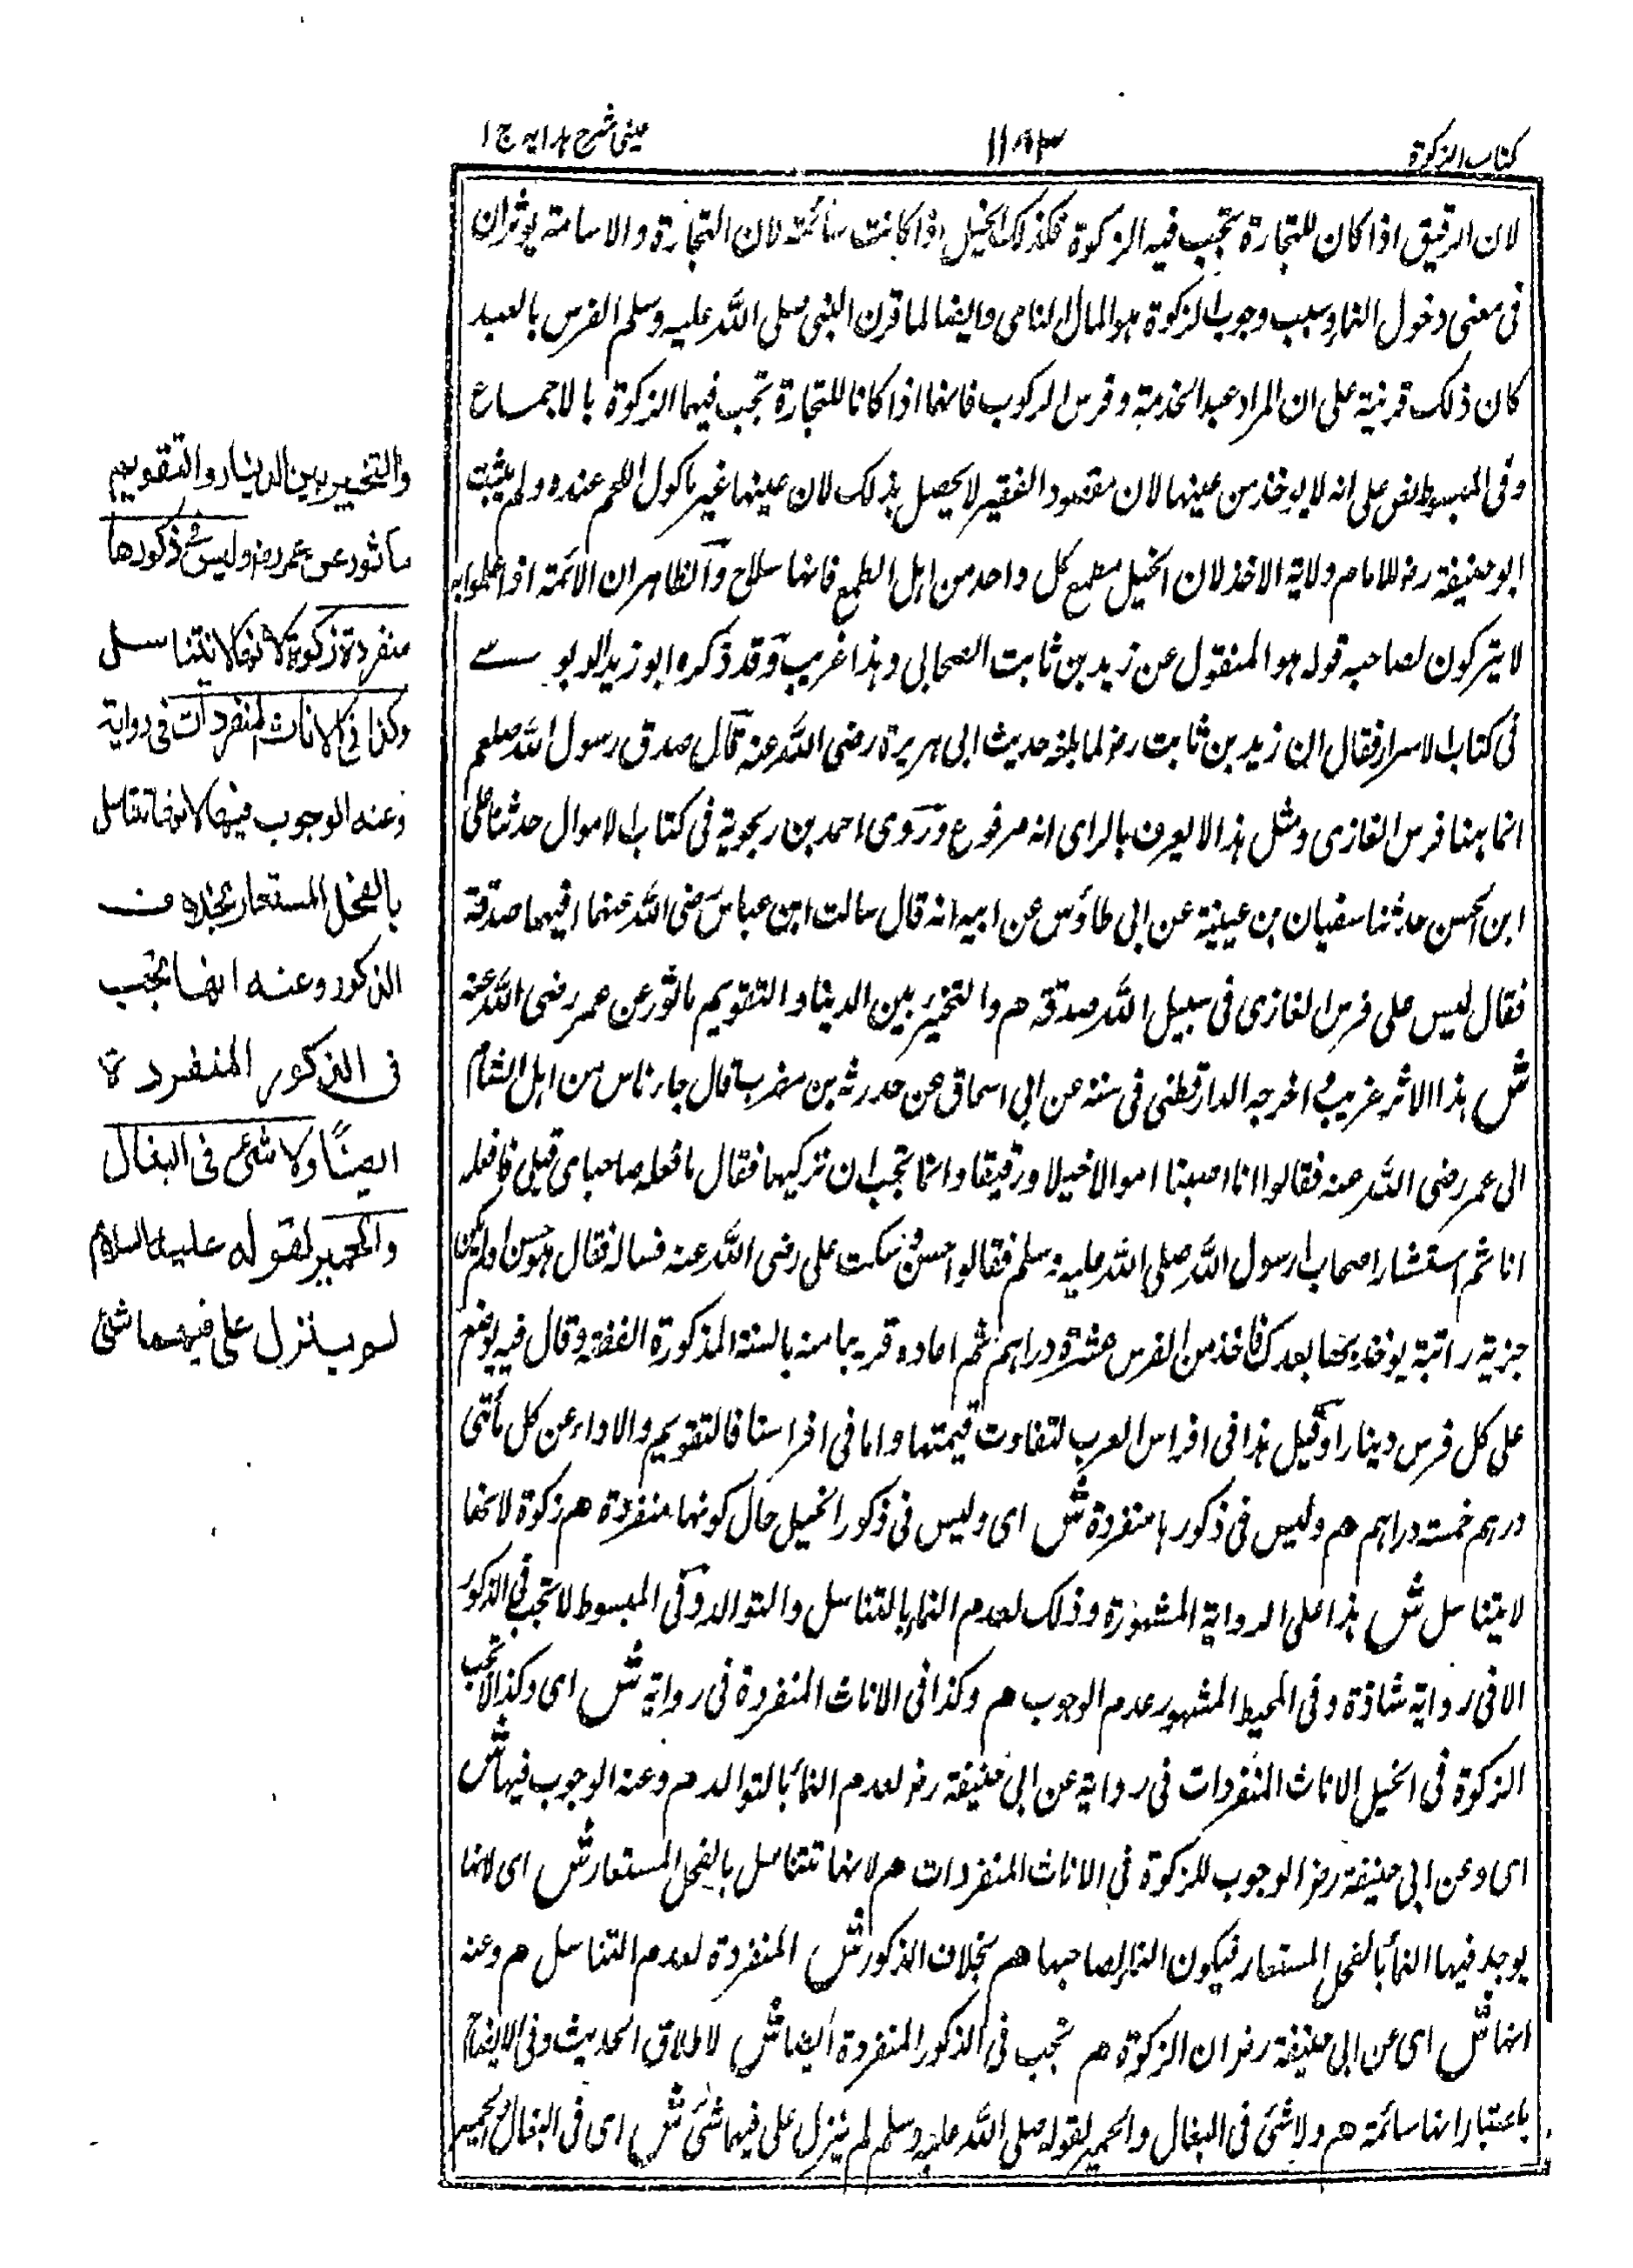 كتاب الزكوة
١١٩٣
عينى شرح هدايه ج ١
لان الرقيق اذا كان للتجارة تجب فيه الزكوة فكذلك الخيل اذا كانت سائمة لان التجارة والاسامة يوثران
فى معنى دخول النماء وسبب وجوب الزكوة هو المال النامى وايضا لما قرن النبى صلى الله عليه وسلم الفرس بالعبد
كان ذلك قرنية على ان المراد عبد الخدمة وفرس الركوب فانهما اذا كانا للتجارة تجب فيهما الزكوة بالاجماع
وفى المبسوط نص على انه لا يوخذ من عينها لان مقصود الفقير لا يحصل بذلك لان عينها غير ماكول اللحم عنده ولم يثبت
ابو حنيفة رض للامام ولاية الاخذ لان الخيل مطمع كل واحد من اهل الطمع فانها سلاح والظاهر ان الائمة اذا علموا به
لا يتركون لصاحبه قوله هو المنقول عن زيد بن ثابت الصحابى وهذا غريب وقد ذكره ابو زيد الدبوسے
فى كتاب الاسرار فقال ان زيد بن ثابت رض لما بلغه حديث ابى هريرة رضى الله عنه قال صدق رسول الله صلعم
انما هنا فرس الغازى ومثل هذا لا يعرف بالراى انه مرفوع وروى احمد بن زنجوية فى كتاب الاموال حدثنا على
ابن الحسن حدثنا سفيان بن عيينة عن ابى طاؤس عن ابيه انه قال سالت ابن عباس رضى الله عنهما افيهما صدقة
فقال ليس على فرس الغازى فى سبيل الله صدقة م والتخيير بين الدينار والتقويم ماثور عن عمر رضى الله عنه
ش هذا الاثر غريب اخرجه الدارقطنى فى سننه عن ابى اسحاق عن حدرثة بن مضرب قال جاء ناس من اهل الشام
الى عمر رضى الله عنه فقالوا انا اصبنا اموالا خيلا ورقيقا وانما تجب ان نزكيها فقال ما فعله صاحباى قبلى فافعله
انا ثم استشار اصحاب رسول الله صلى الله عليه وسلم فقالوا حسن وسكت على رضى الله عنه فساله فقال هو حسن لو لم تكن
جزية راتبة يوخذ بها بعدك فاخذ من الفرس عشرة دراهم ثم اعاده قريبا منه بالسنة المذكورة القصة وقال فيه يوضع
على كل فرس دينارا وقيل هذا فى افراس العرب لتفاوت قيمتها واما فى افراسنا فالتقويم والاداء عن كل مأتى
درهم خمسة دراهم م وليس فى ذكورها منفردة ش اى وليس فى ذكور الخيل حال كونها منفردة م زكوة لانها
لا يتناسل ش هذا على الرواية المشهورة وذلك لعدم النماء بالتناسل والتوالد وفى المبسوط لا تجب فى الذكور
الا فى رواية شاذة وفى المحيط المشهور عدم الوجوب م وكذا فى الاناث المنفردة فى رواية ش اى وكذا لا تجب
الزكوة فى الخيل الاناث المنفردات فى رواية عن ابى حنيفة رض لعدم النماء بالتوالد م وعنه الوجوب فيها ش
اى وعن ابى حنيفة رض الوجوب للزكوة فى الاناث المنفردات م لانها تتناسل بالفحل المستعار ش اى لانها
يوجد فيها النماء بالفحل المستعار فيكون النماء لصاحبها م بخلاف الذكور ش المنفردة لعدم التناسل م وعنه
انها ش اى عن ابى حنيفة رض ان الزكوة م تجب فى الذكور المنفردة ايضا ش لاطلاق الحديث وفى الايضاح
باعتبار انها سائمة م ولا شئ فى البغال والحمير لقوله صلى الله عليه وسلم لم ينزل على فيهما شئ ش اى فى البغال والحمير
والتخيير بين الدينار والتقويم
مأثور عن عمر رض وليس فى ذكورها
منفردة زكوة لانها لا تتناسل
وكذا فى الاناث المنفردات فى رواية
وعنه الوجوب فيها لانها تتناسل
بالفحل المستعار بخلاف
الذكور وعنه انها تجب
فى الذكور المنفردة
ايضًا ولا شئ فى البغال
والحمير لقوله عليه السلام
لم ينزل على فيهما شئ